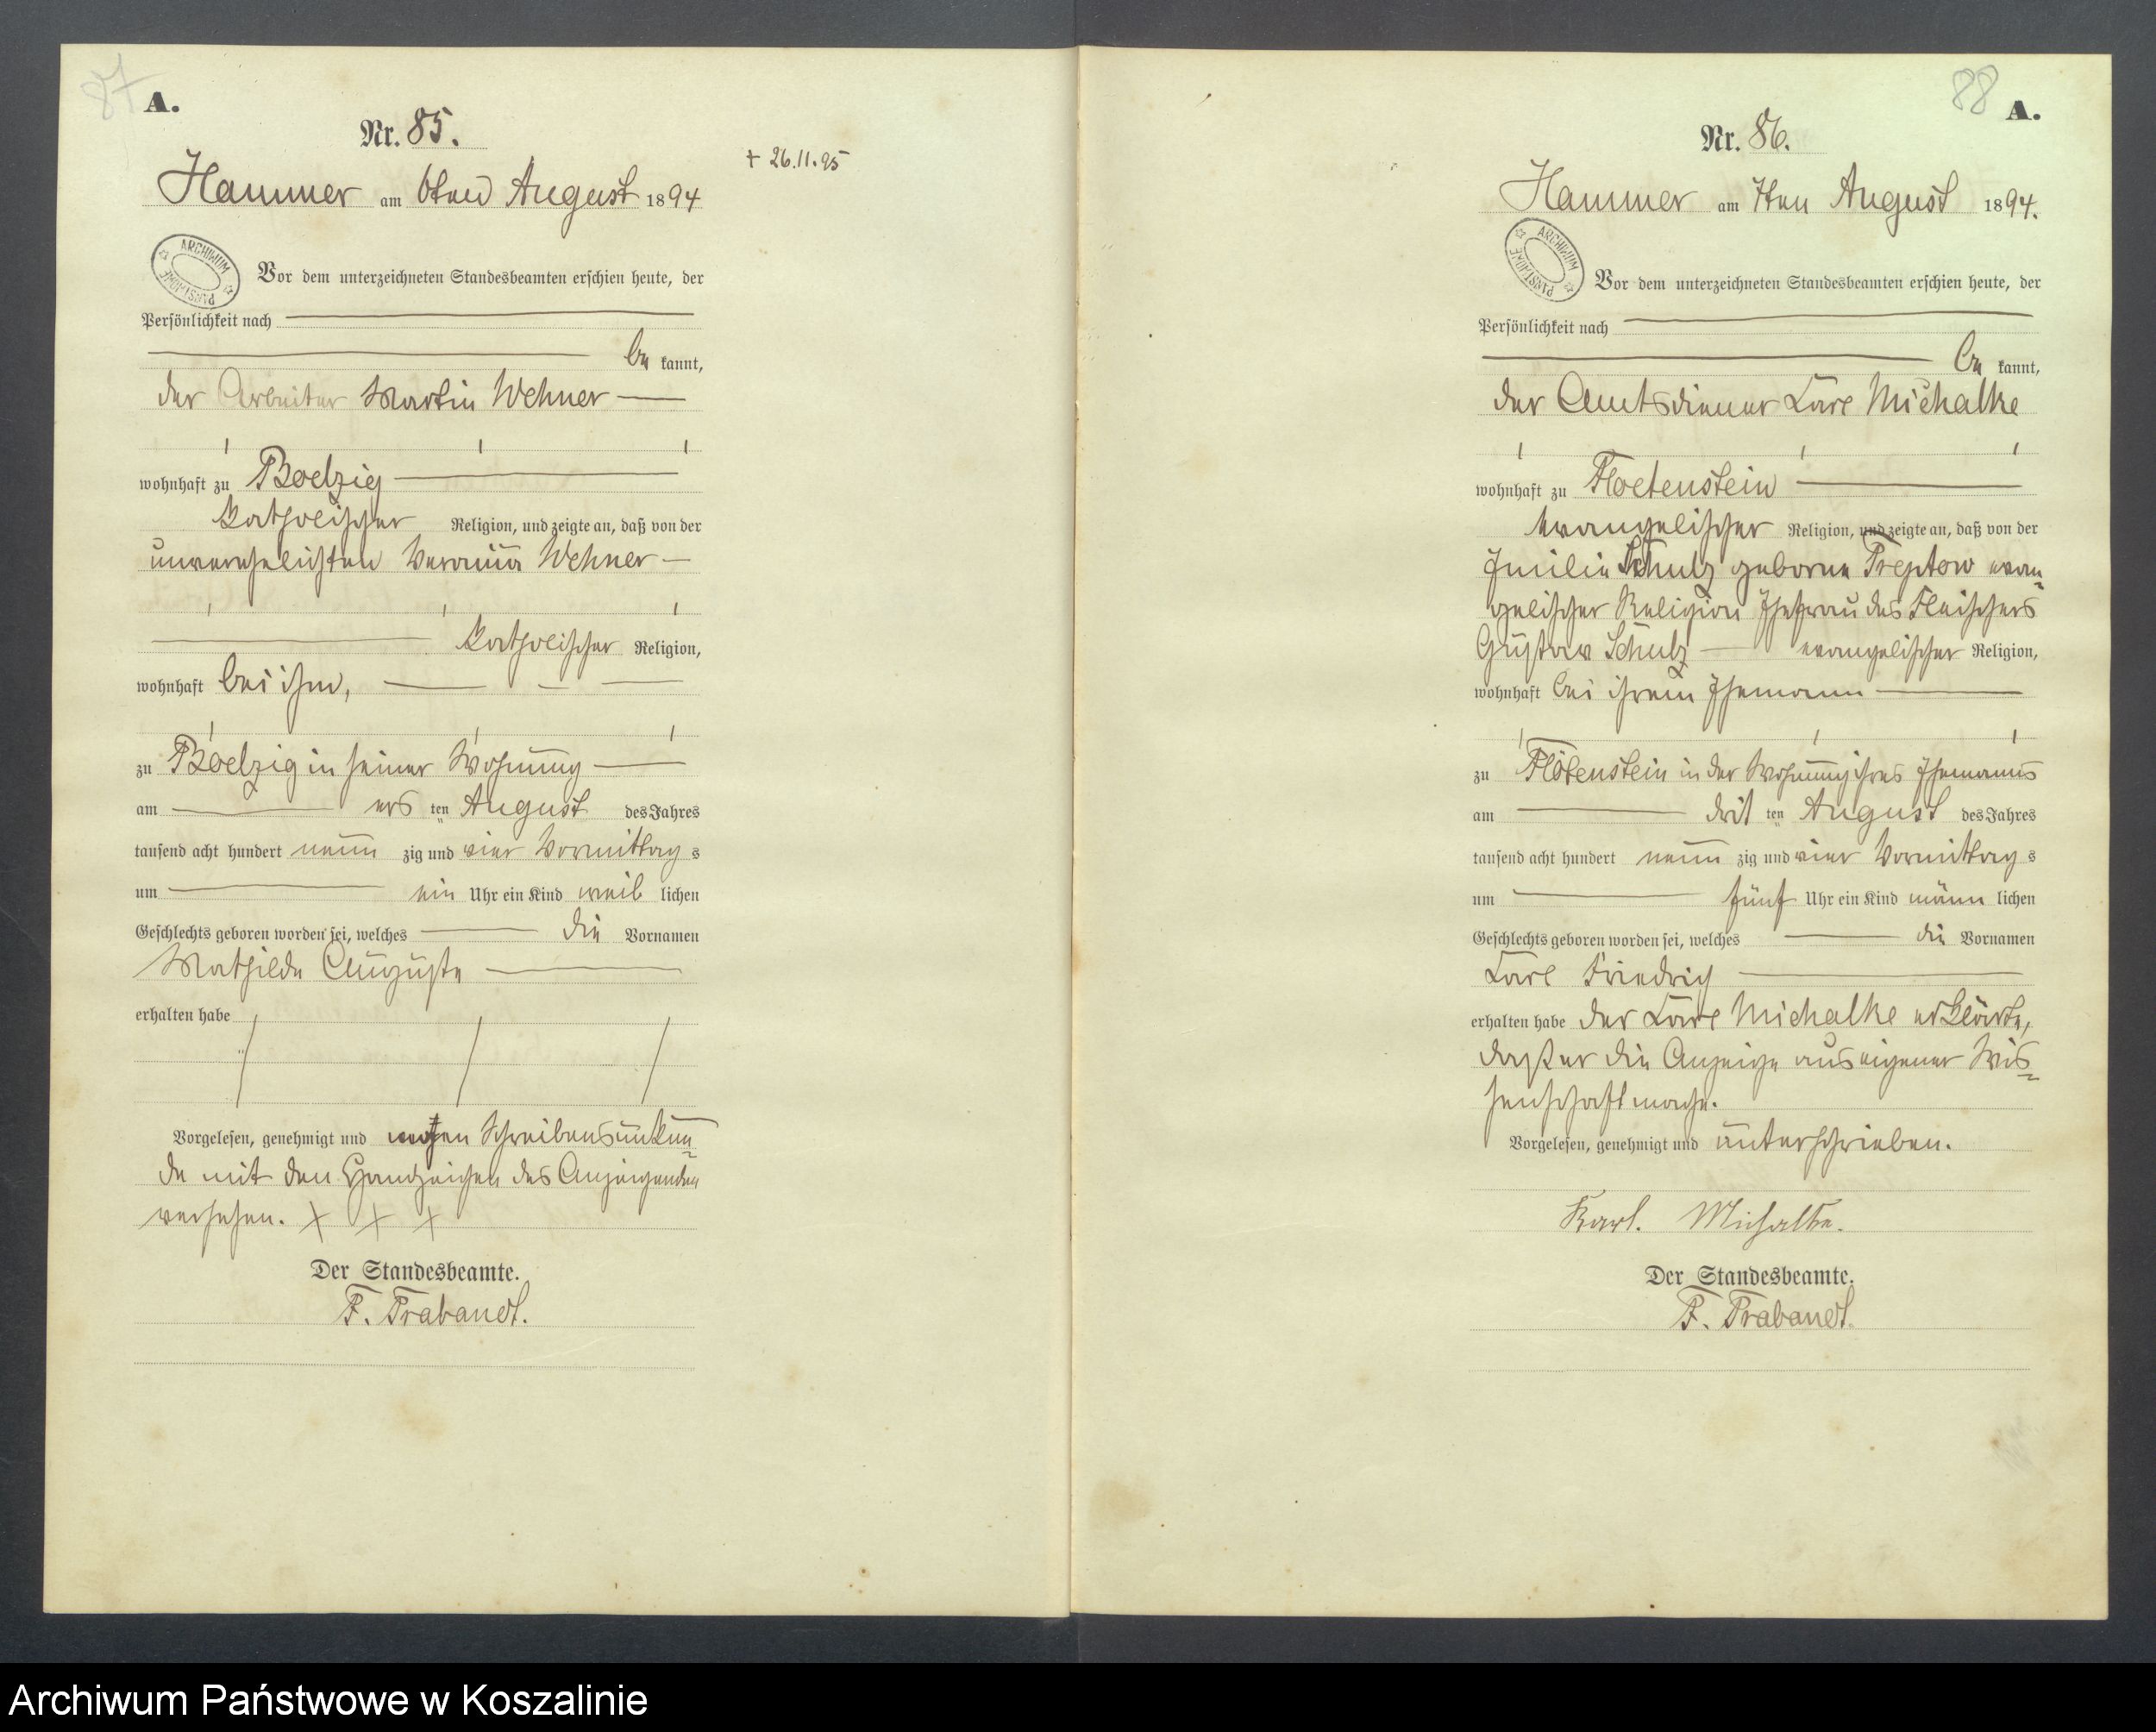 87
A.
Nr. 85.
+ 26.11.95
Hammer am 6ten August 1894
ARCHIWUM PAŃSTWOWE
Vor dem unterzeichneten Standesbeamten erschien heute, der
Persönlichkeit nach
be kannt,
der Arbeiter Martin Wehner
wohnhaft zu Boelzig
katholischer Religion, und zeigte an, daß von der
unverehelichten Veronika Wehner
katholischer Religion,
wohnhaft bei ihm,
zu Boelzig in seiner Wohnung
am ers ten August des Jahres
tausend acht hundert neun zig und vier Vormittag s
um ein Uhr ein Kind weib lichen
Geschlechts geboren worden sei, welches die Vornamen
Mathilde Auguste
erhalten habe
Vorgelesen, genehmigt und wegen Schreibensunkun=
de mit den Handzeichen des Anzeigenden
versehen. X X X
Der Standesbeamte.
F. Trabandt.
88
A.
Nr. 86.
Hammer am 7ten August 1894.
ARCHIWUM PAŃSTWOWE
Vor dem unterzeichneten Standesbeamten erschien heute, der
Persönlichkeit nach
be kannt,
der Amtsdiener Carl Michalke
wohnhaft zu Floetenstein
evangelischer Religion, und zeigte an, daß von der
Emilie Schulz geborne Treptow evan=
gelischer Religion Ehefrau des Fleischers
Gustav Schulz evangelischer Religion,
wohnhaft bei ihrem Ehemann
zu Flötenstein in der Wohnung ihres Ehemanns
am drit ten August des Jahres
tausend acht hundert neun zig und vier Vormittag s
um fünf Uhr ein Kind männ lichen
Geschlechts geboren worden sei, welches die Vornamen
Carl Friedrich
erhalten habe der Carl Michalke erklärte,
daß er die Anzeige aus eigener Wis=
senschaft mache.
Vorgelesen, genehmigt und unterschrieben.
Karl. Michalke.
Der Standesbeamte.
F. Trabandt.
Archiwum Państwowe w Koszalinie